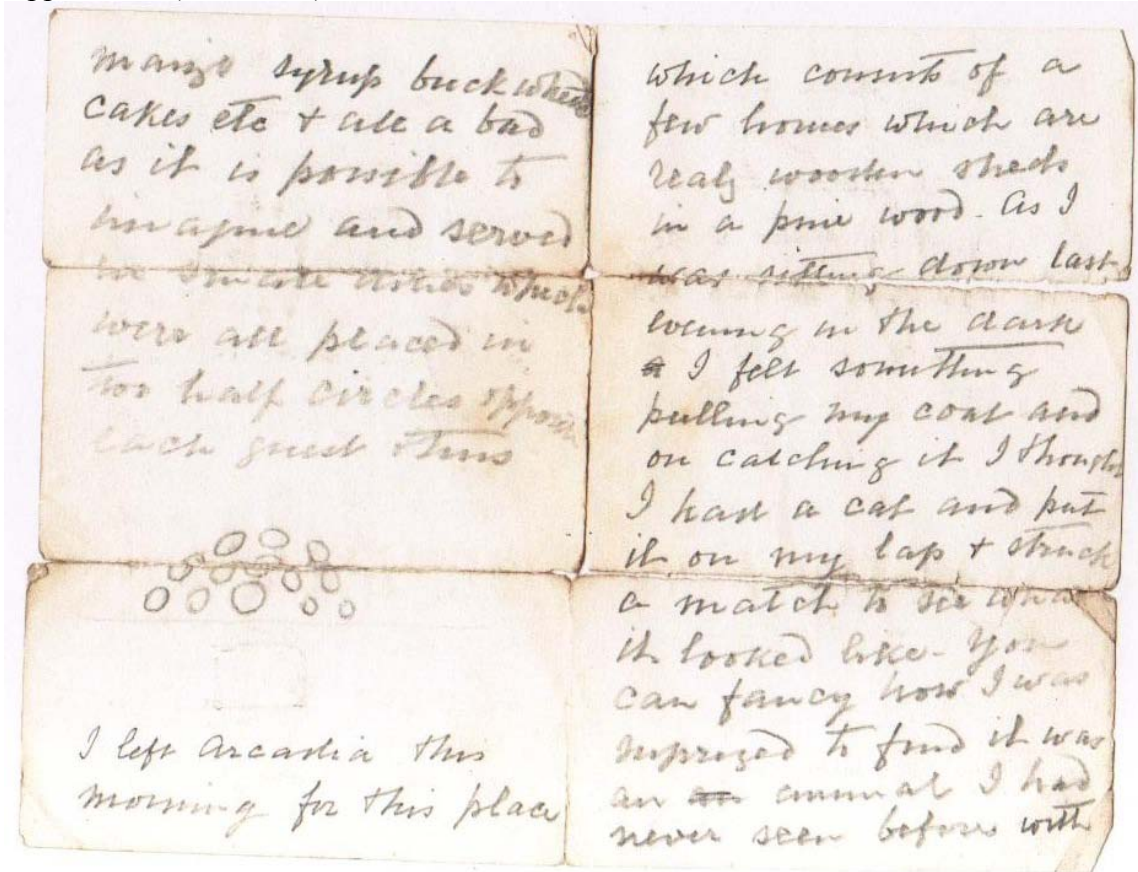 maize syrup buckwheat
cakes etc + all a bad
as it is possible to
imagine and served
in small dishes which
were all placed in
too half circles opposite
each guest thus
I left Arcadia this
morning for this place
which consists of a
few homes which are
realy wooden sheds
in a pine wood. As I
was sitting down last
evening in the dark
I felt something
pulling my coat and
on catching it I thought
I had a cat and put
it on my lap + struck
a match to see what
it looked like - You
can fancy how I was
surprized to find it was
an animal I had
never seen before with